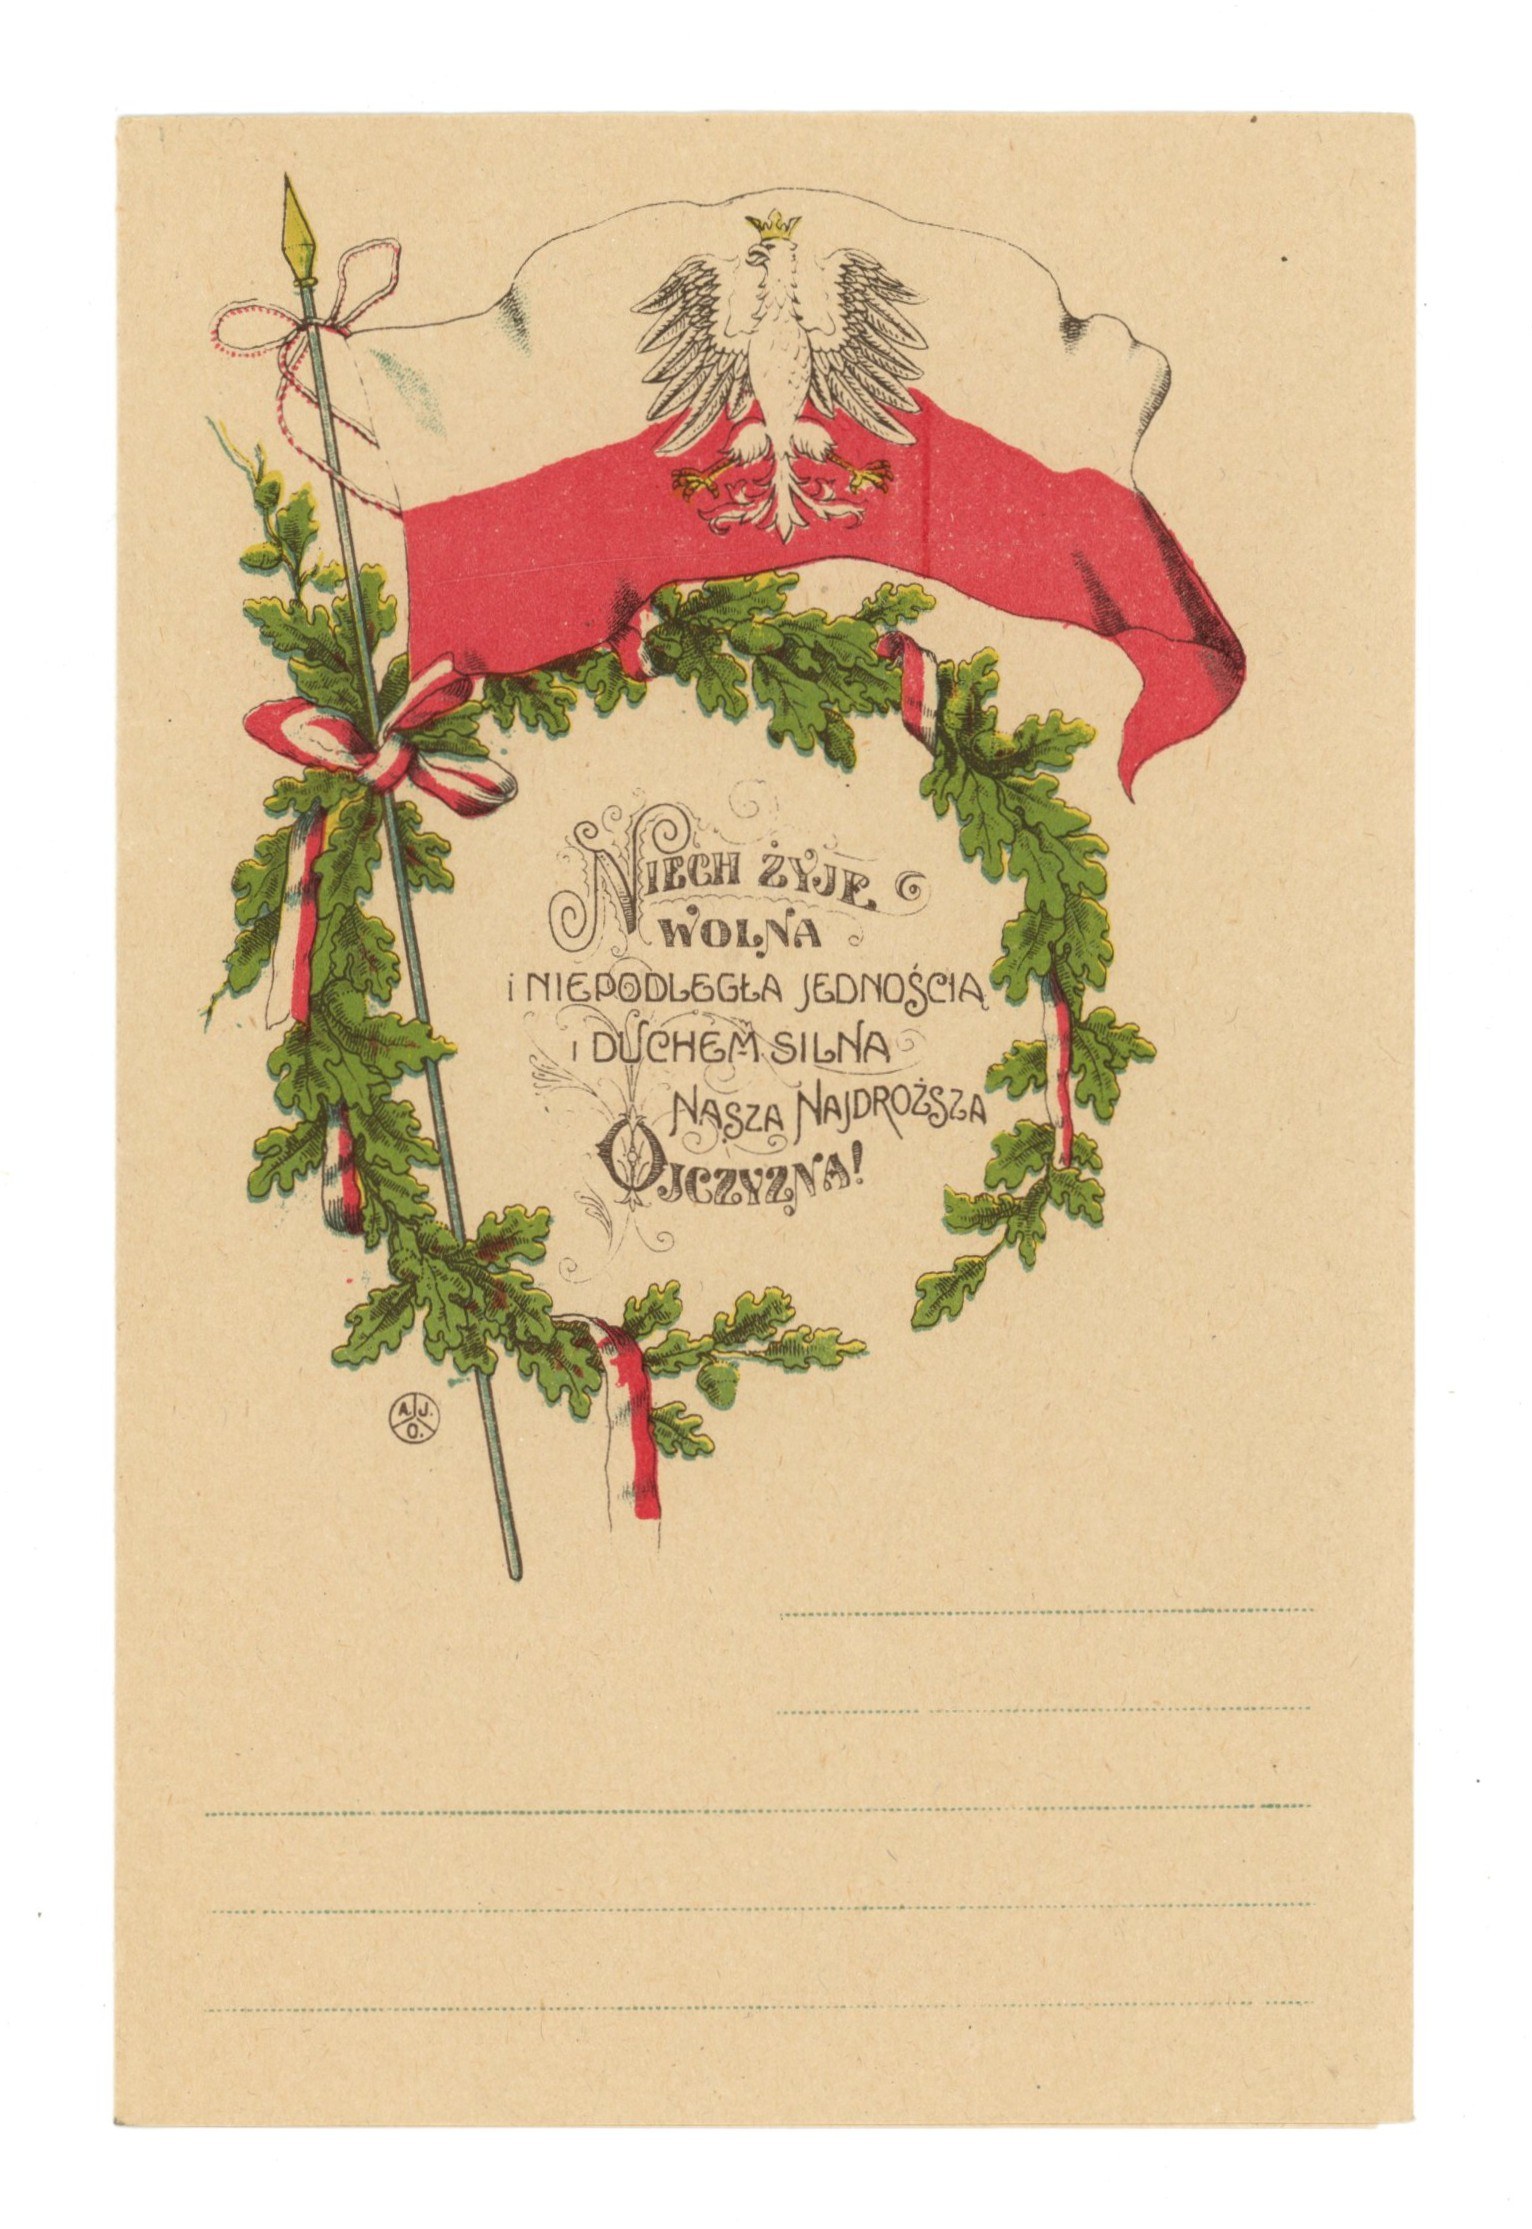 NIECH ŻYJE
WOLNA
i NIEPODLEGŁA JEDNOŚCIĄ
i DUCHEM SILNA
NASZA NAJDROŻSZA
OJCZYZNA!
A. J.
O.